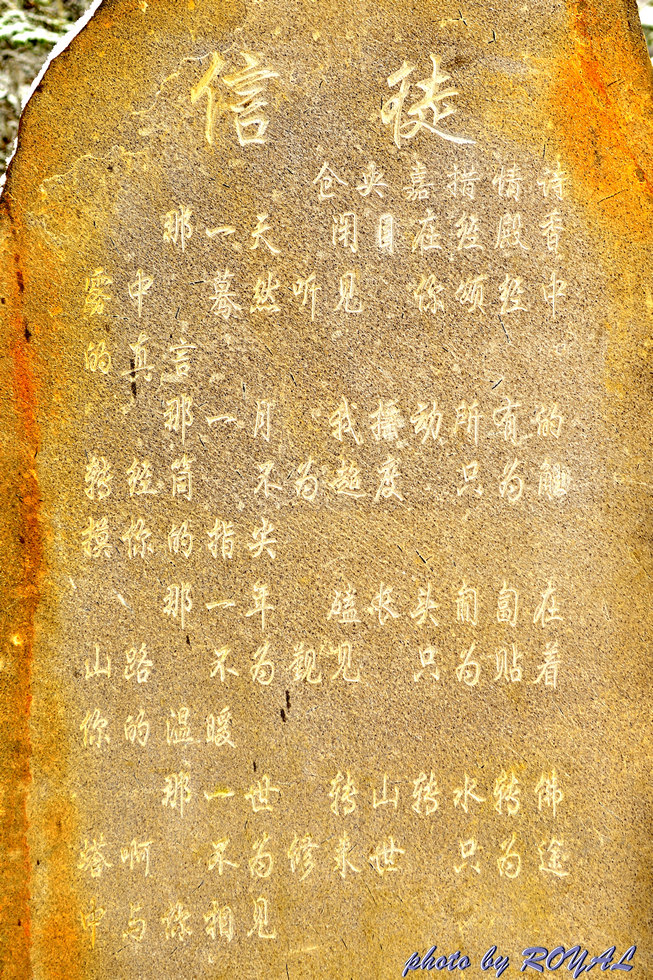 信 徒
仓央嘉措情诗
那一天 闭目在经殿香
雾中 蓦然听见 你颂经中
的真言
那一月 我摇动所有的
转经筒 不为超度 只为触
摸你的指尖
那一年 磕长头匍匐在
山路 不为觐见 只为贴着
你的温暖
那一世 转山转水转佛
塔啊 不为修来世 只为途
中与你相见
photo by ROYAL